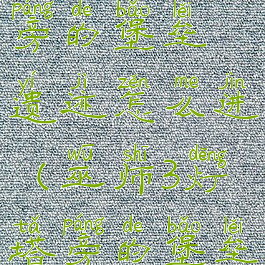 páng de bǎo lěi
旁的堡垒
yí jì zěn me jìn
遗迹怎么进
wū shī dēng
(巫师3灯
tǎ páng de bǎo lěi
塔旁的堡垒